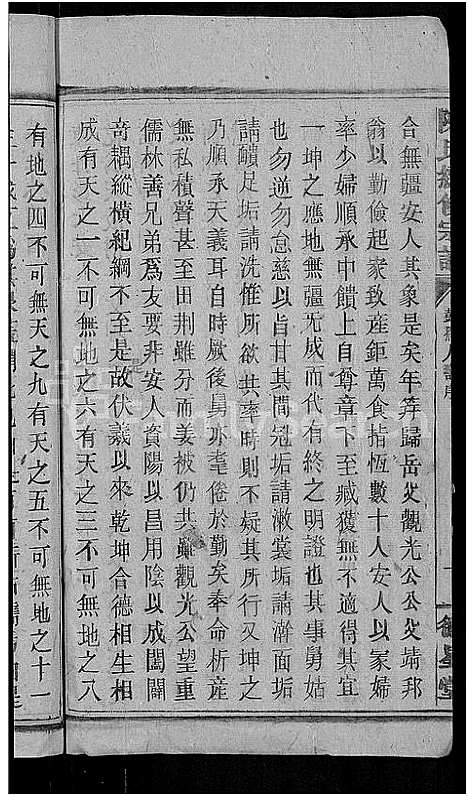 合無疆安人其象是矣年笄歸岳父觀光公公父靖邦
翁以勤儉起家致産鉅萬食指恆數十人安人以冢婦
率少婦順承中饋上自尊章下至臧獲無不得其宜
一坤之應地無疆旡成而代有終之明證也其事舅姑
也勿逆勿怠慈以旨甘其間冠垢請漱裳垢請澣面垢
請靧足垢請洗惟所欲共率時則不疑其所行又坤之
乃順承天義則自時厥後舅亦耄倦於勤矣奉命析産
無私積聲甚至田荆雖分而姜被仍共則觀光公望重
儒林善兄弟爲友要非安人資陽以昌用陰以成闔闢
奇耦縱横紀綱不至是故伏羲以來乾坤合德相生相
成有天之一不可無地之六有天之三不可無地之八
有地之四不可無天之九有天之五不可無地之十一